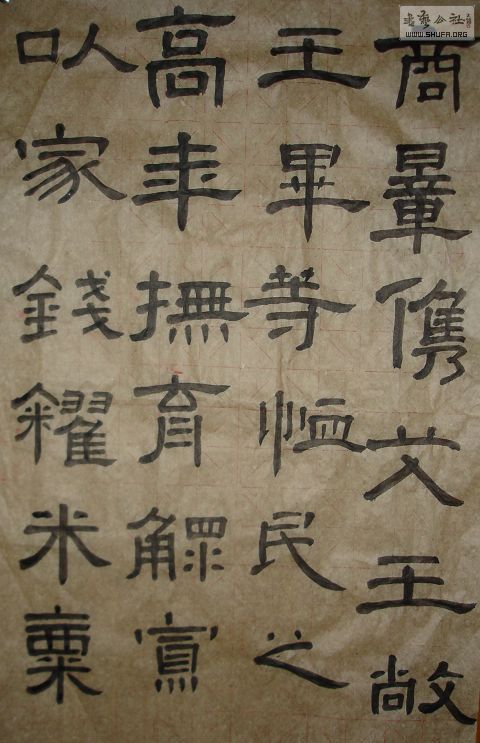 商量儁艾王敞
王畢等恤民之
高年撫育鰥寡
以家錢糴米粟
書藝公社
WWW.SHUFA.ORG